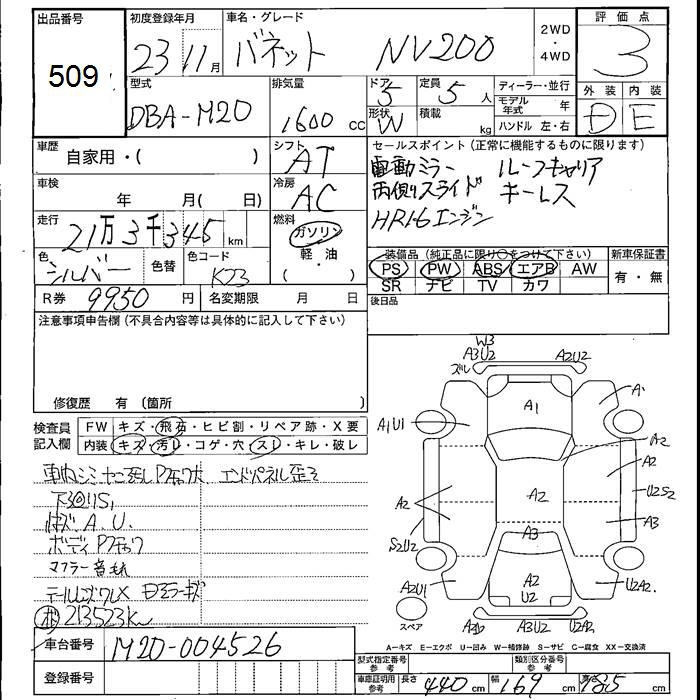 出品番号
509
初度登録年月
23 11月
車名・グレード
バネット NV200
2WD
・
4WD
評価点
3
型式
DBA-M20
排気量
1600 CC
ドア
5
形状
W
定員
5 人
積載
kg
ディーラー・並行
モデル年式 年
ハンドル 左・右
外装 内装
D E
車歴
自家用・( )
シフト
AT
セールスポイント (正常に機能するものに限ります)
電動ミラー ルーフキャリア
両側スライド キーレス
HR16エンジン
車検
年 月( 日)
冷房
AC
走行
21万3千345km
燃料
ガソリン
・
軽・油
( )
色
シルバー
色替
色コード
K23
装備品 (純正品に限り○をつけて下さい)
PS PW ABS エアB AW
SR ナビ TV カワ
新車保証書
有・無
R券 9950 円
名変期限 月 日
後日品
注意事項申告欄 (不具合内容等は具体的に記入して下さい)
修復歴 有 (箇所 )
検査員
記入欄
FW キズ・飛石・ヒビ割・リペア跡・X要
内装 キズ・汚レ・コゲ・穴・スレ・キレ・破レ
エンドパネル歪ミ
下廻リS1
A.U.
ボディ
マフラー
213523km
車台番号
M20-004526
登録番号
W3
A3U2
A2U2
ズレ
A1
A1
A1U1
A2
A2
A2
A2
U2S2
A3
A3
S2U2
A2
U2
A2U1
U2A2
スペア
A3U2
U2A2
A-キズ E-エクボ U-凹み W-補修跡 S-サビ C-腐食 XX-交換済
型式指定番号
参考
類別区分番号
参考
車庫証明用
参考
長さ 440 cm
幅 169 cm
高さ 185 cm